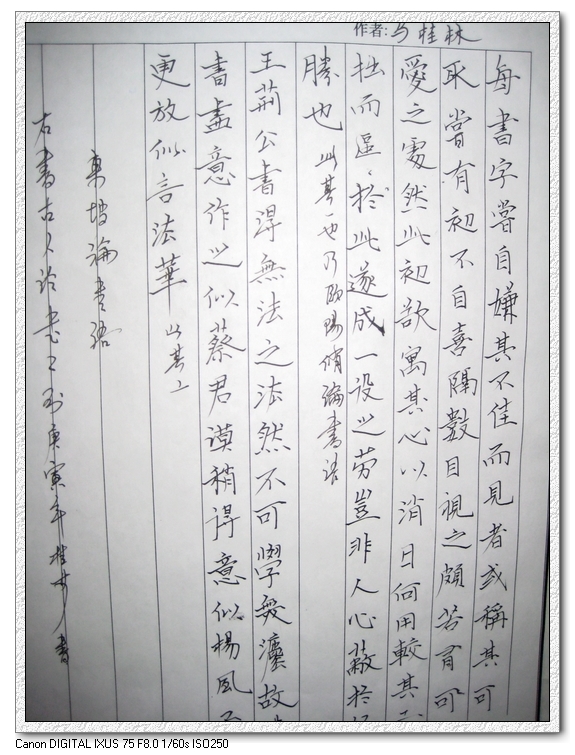 作者:马桂林
每書字嘗自嫌其不佳而見者或稱其可
取嘗有初不自喜隔數日視之頗若有可
愛之處然此初欲寓其心以消日何用較其
拙而區、於此遂成一設之勞豈非人心蔽於
勝也 此其一也乃歐陽脩論書語
王荊公書得無法之法然不可學無法故
書盡意作之似蔡君謨稍得意似楊風
更放似言法華 此其二
東坡論書語
右書古人論書二則庚寅年桂林書
Canon DIGITAL IXUS 75 F8.0 1/60s ISO250